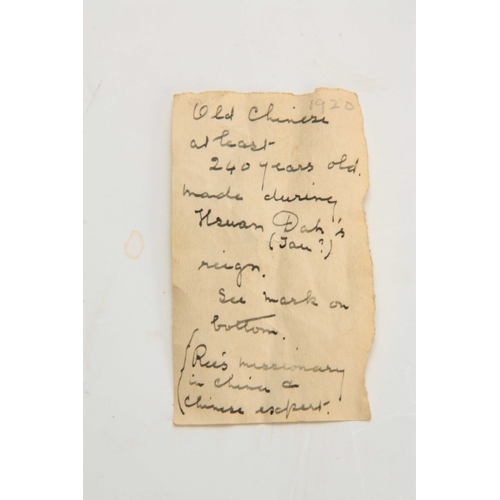 1920
Old Chinese
at least
240 years old.
made during
Hsuan Dah's
(Tau?)
reign.
See mark on
bottom.
Ree's missionary
in China &
Chinese expert.